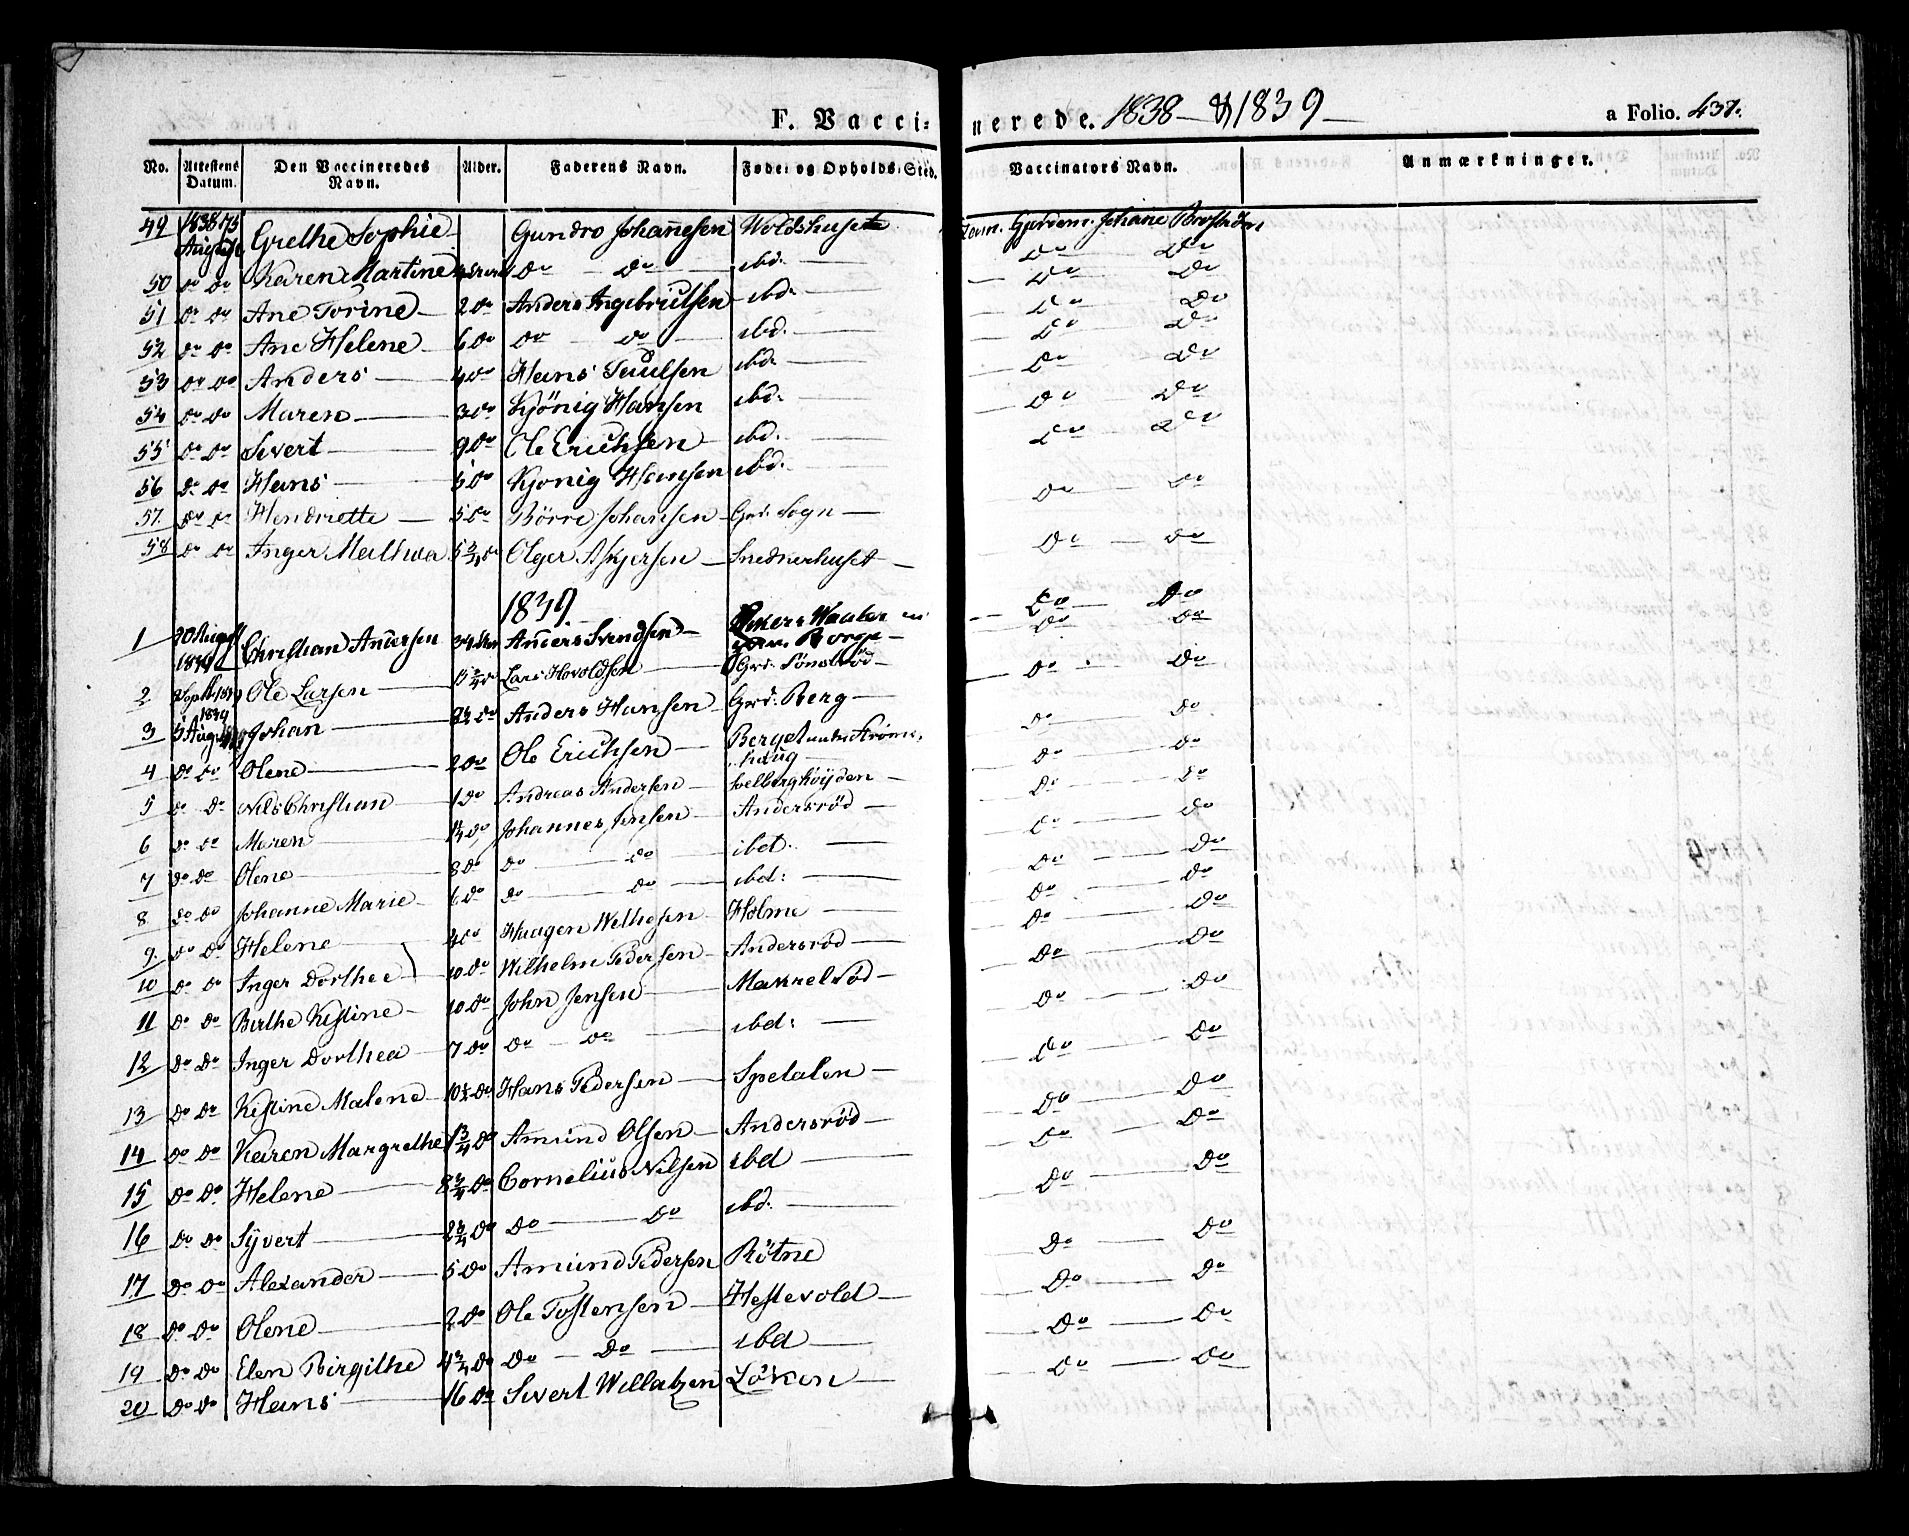 F. Vaccinerede. 1838 – & 1839 – a Folio. 437.
No. Attestens Datum. Den Vaccineredes Navn. Alder. Faderens Navn. Føde- og Opholds-Sted. Vaccinators Navn. Anmærkninger.
49 1838 August Grethe Sophie Gundro Johannesen Woldshuset Exam. Gjordem. Johane Broström
50 do do Karen Martine do – do ibd. do do
51 do do Ane Torine 2 do Anders Ingebrittsen ibd. do do
52 do do Ane Helene 6 do do do ibd. do do
53 do do Anders 4 do Hans Paulsen ibd. do do
54 do do Maren 3 do Kjönig Hansen ibd. do do
55 do do Sivert 9 do Ole Erichsen ibd. do do
56 do do Hans 5 do Kjonig Hansen ibd. do do
57. do do Hendriette 5 do Börre Johansen Grd. Sogn do do
58 do do Inger Mathea 5 3/4 do Olger Askjersen Snednerhuset do do
1839.
1 20 August 1839 Christian Andersen Anders Svendsen do do
2 Septbr 1839 Ole Larsen Lars Havoldsen Grd. Sønströd do do
3 5 August 1839 Johan do Anders Hansen Grd. Berg do do
4 do do Olene 2 do Ole Erichsen Berget under Strömshaug do do
5 do do Nils Christian 1 do Andreas Andersen Solberghöyden do do
6 do do Maren do Johannes Jensen Andersröd do do
7 do do Olene 8 do do do ibd. do do
8 do do Johanne Marie 6 do do do ibd: do do
9. do do Helene 4 do Haagen Welhesen Holme do do
10 do do Inger Dorthee 10 do Wilhelm Pedersen Andersröd do do
11 do do Birthe Kistine 10 do John Jensen Makrelröd do do
12 do do Inger Dorthea 7 do do do ibd: do do
13 do do Kistine Malene 10 1/2 do Hans Pedersen Spetalen do do
14 do do Karen Margrethe 1 3/4 do Amund Olsen Andersröd do do
15 do do Helene 8 3/4 do Cornelius Nilsen ibd do do
16 do do Syvert 2 3/4 do do do ibd. do do
17 do do Alexander 5 do Amund Pedersen Rötne do do
18 do do Olene 2 do Ole Tostensen Hestevold do do
19 do do Elen Birgithe 4 3/4 do do do ibd do do
20 do do Hans 16 do Sivert Willatzen Löken do do